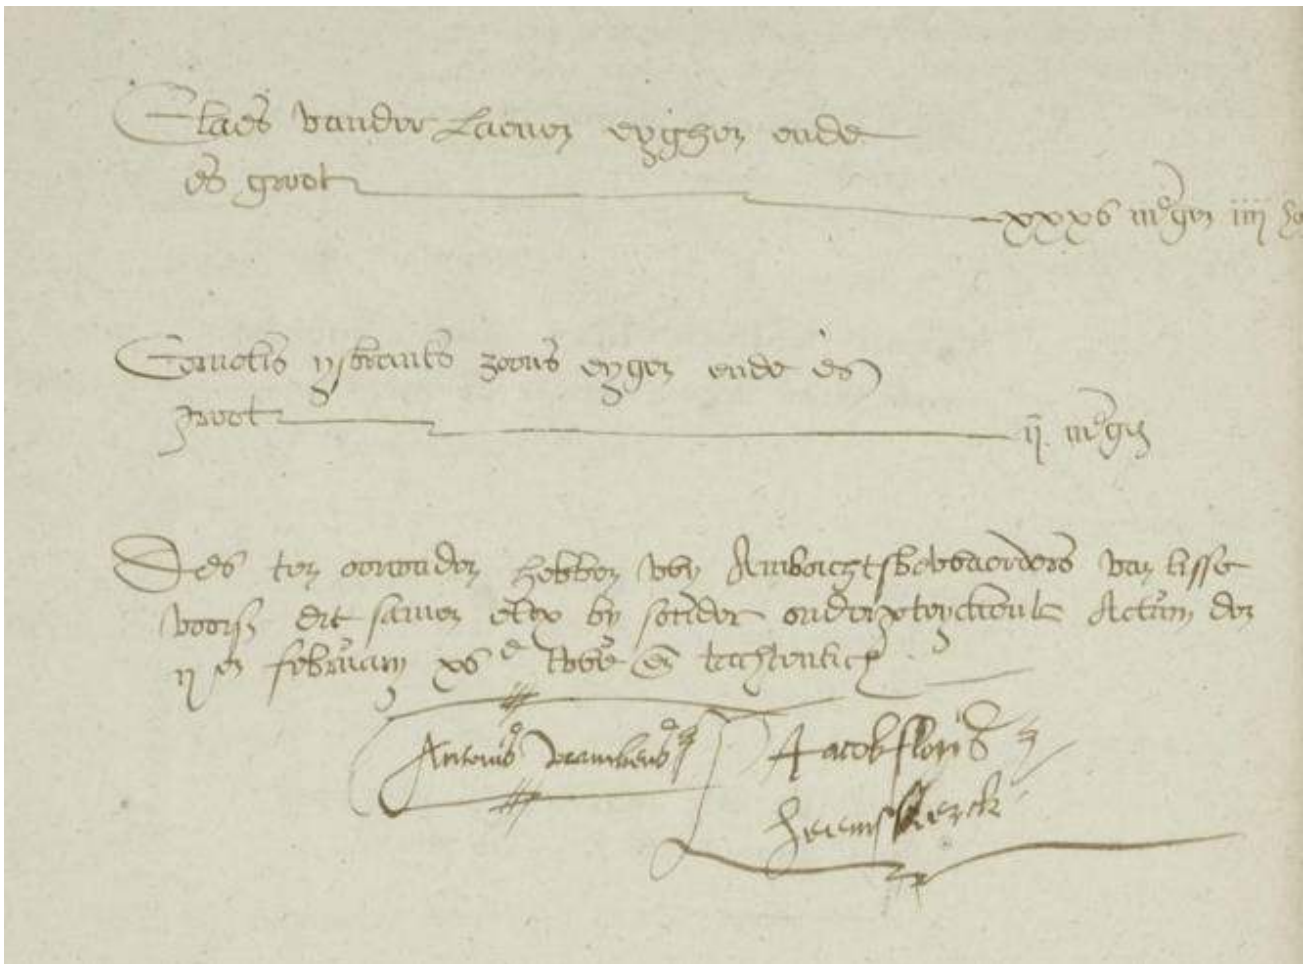 Claes vander Laenen eyghen ende
es groot xxxv morgen iiii ho
Cornelis ysbrants zoons eygen ende es
groot ii morgen
Des ten oorconden hebben wy Ambochtsbewaerders van lisse
voors dit samen elcx by sonder onderteyckent Actum den
ii en february xvc twee en tachtentich
Antonius
Jacob floris
heemskerck